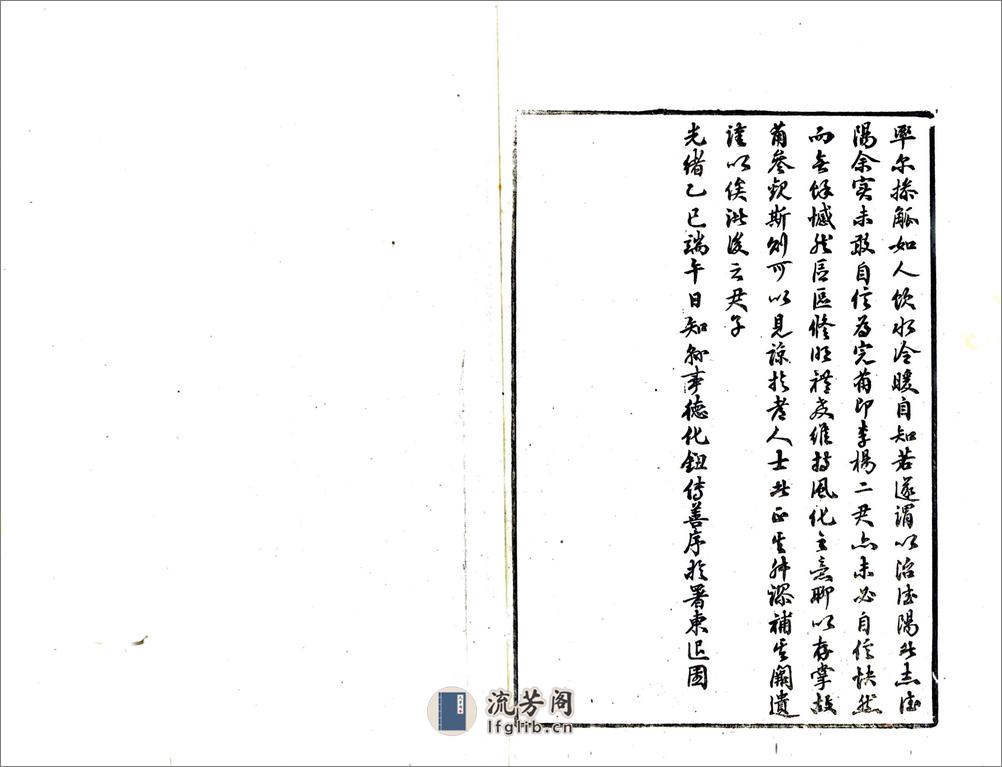 率尔操觚如人飲水冷暖自知若遂謂以治德陽者志德
陽余實未敢自信為完備即李楊二君亦未必自信快然
而無餘憾然區區修明禮教維持風化之意聊以存掌故
備參觀斯則可以見諒於人士正其舛謬補其闕遺
謹以俟後之君子
光緒乙巳端午日知縣事德化鈕傳善序於署東退園
流芳阁
lfglib.cn